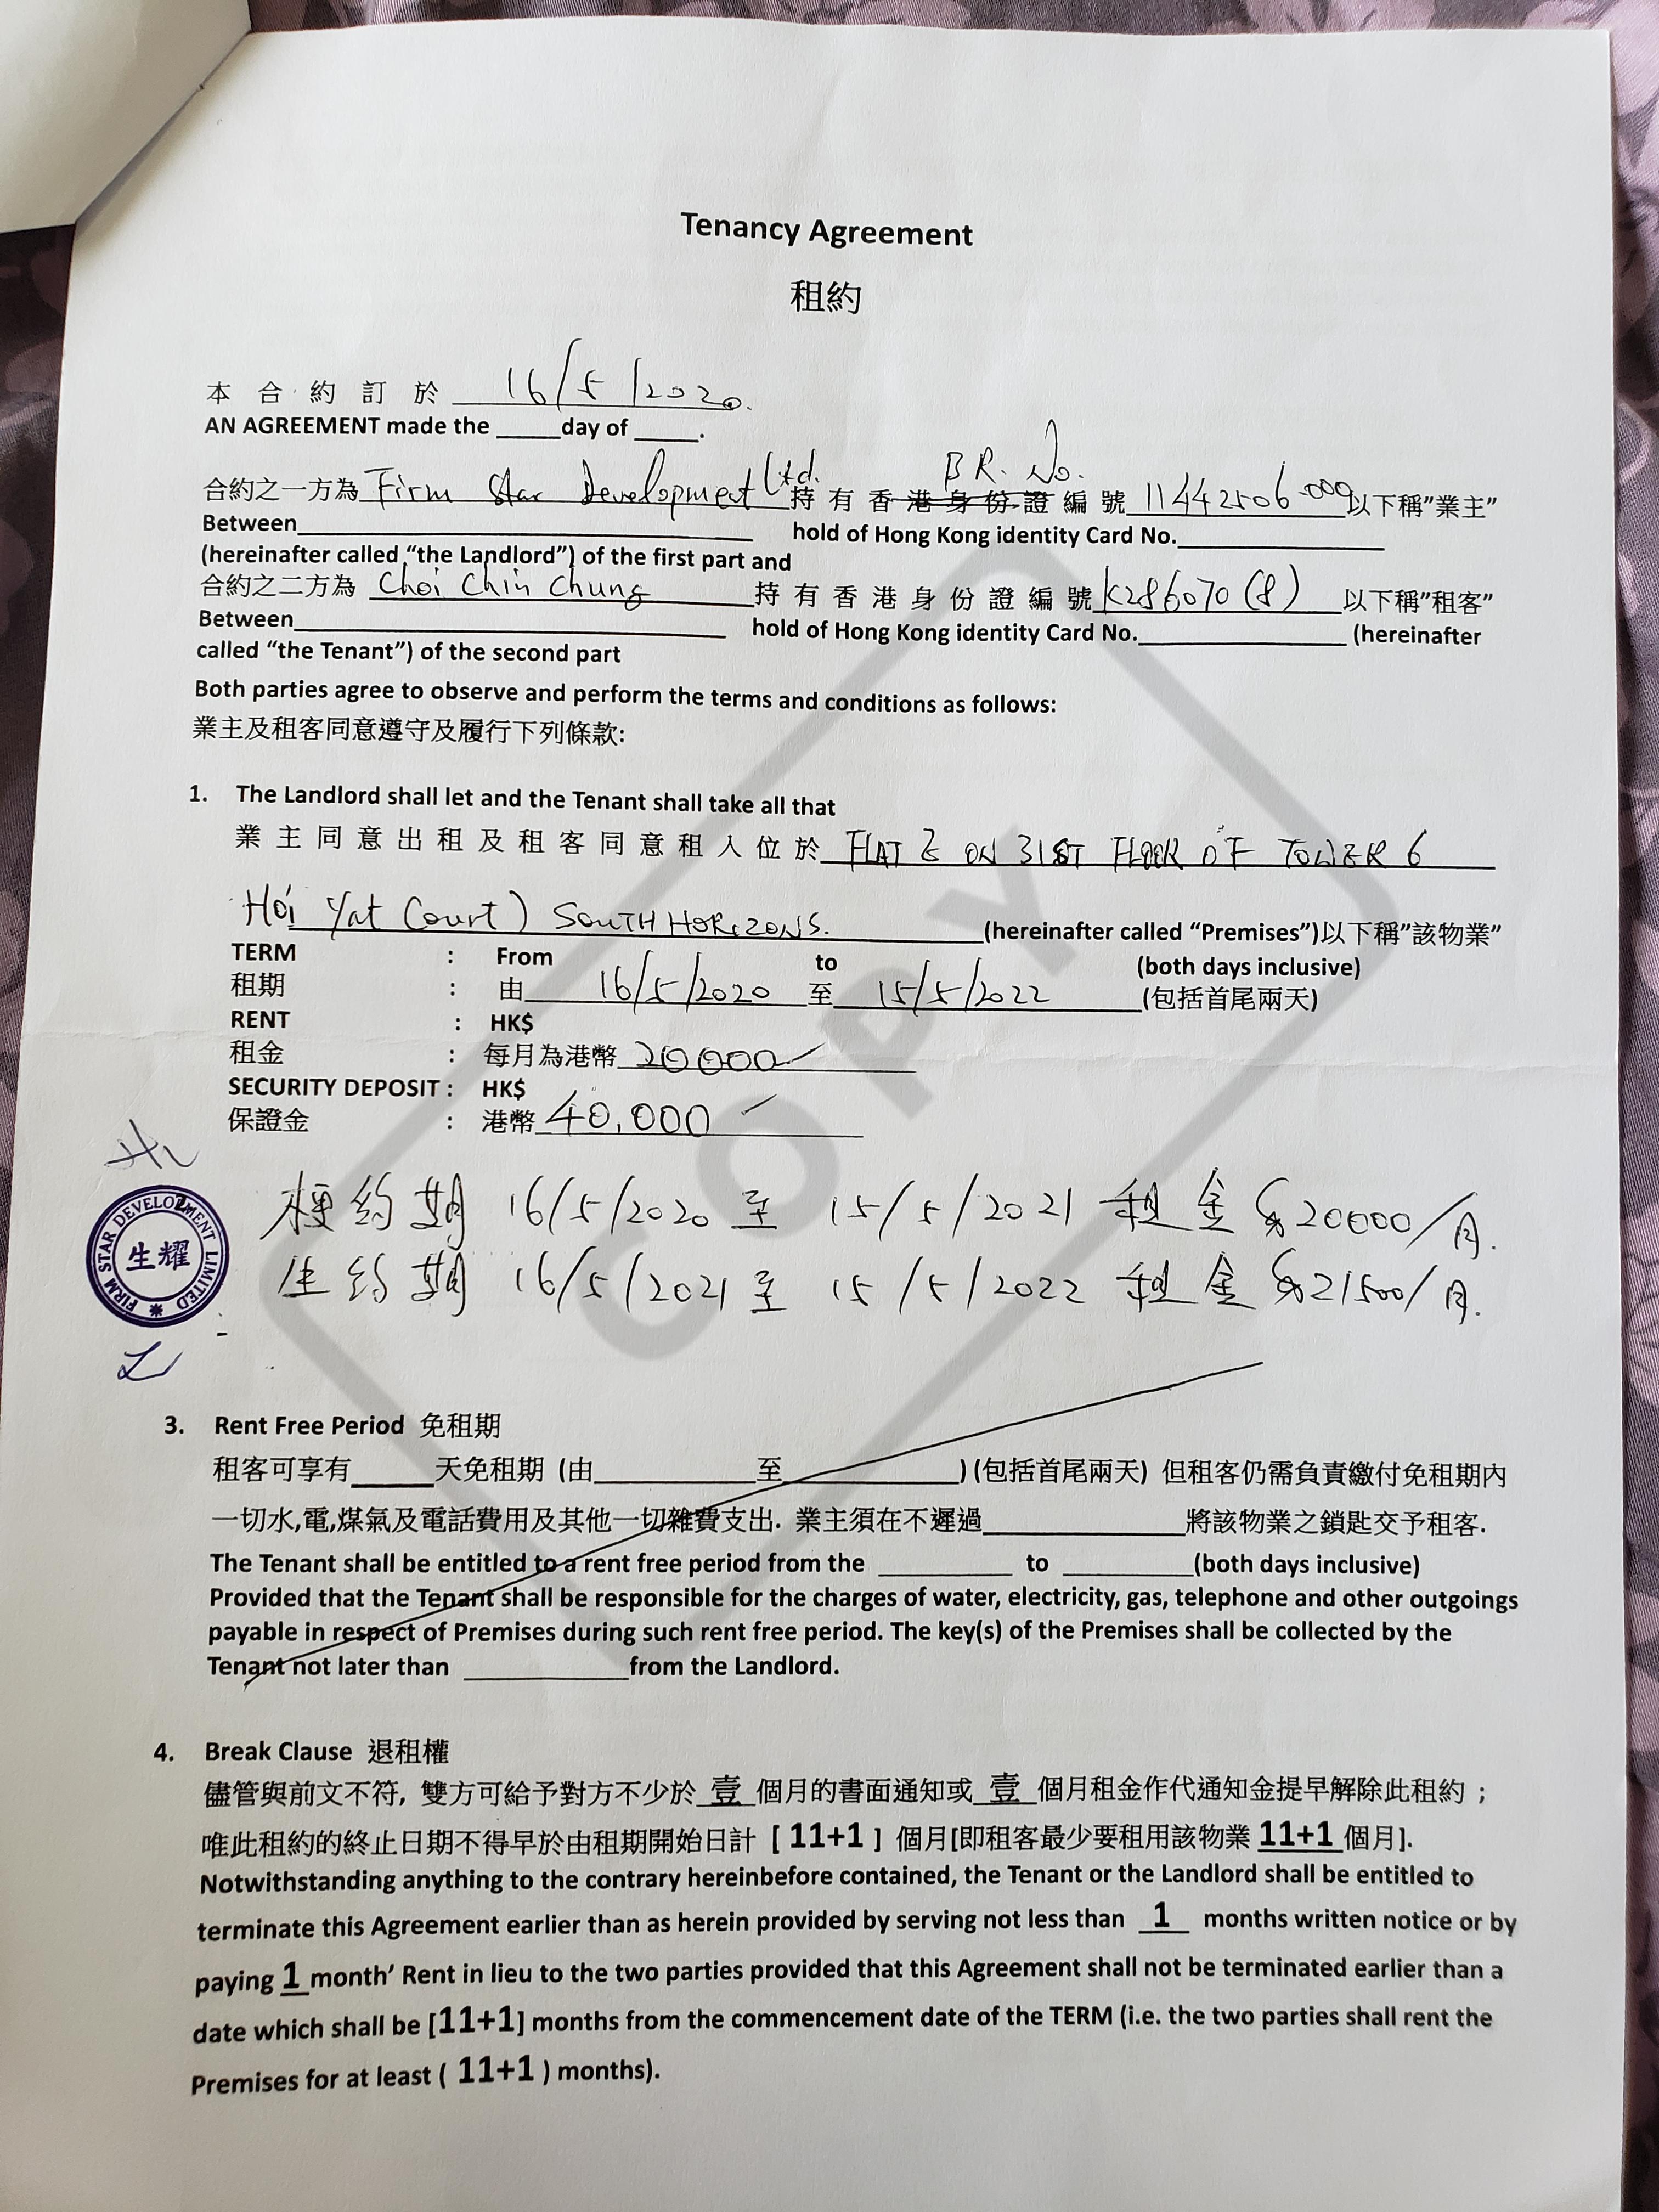 Tenancy Agreement
租約
本合約訂於 16/5/2020.
AN AGREEMENT made the _____ day of _____.
B.R. No.
合約之一方為 Firm Star Development Ltd. 持有香港身份證編號 11442506-000 以下稱"業主"
Between__________ hold of Hong Kong identity Card No.__________
(hereinafter called "the Landlord") of the first part and
合約之二方為 Choi Chin Chung 持有香港身份證編號 K286070(8) 以下稱"租客"
Between__________ hold of Hong Kong identity Card No.__________ (hereinafter
called "the Tenant") of the second part
Both parties agree to observe and perform the terms and conditions as follows:
業主及租客同意遵守及履行下列條款:
1. The Landlord shall let and the Tenant shall take all that
業主同意出租及租客同意租人位於 FLAT E ON 31ST FLOOR OF TOWER 6
Hoi Yat Court) SOUTH HORIZONS. (hereinafter called "Premises")以下稱"該物業"
TERM : From to (both days inclusive)
租期 : 由 16/5/2020 至 15/5/2022 (包括首尾兩天)
RENT : HK$
租金 : 每月為港幣 20000
SECURITY DEPOSIT : HK$
保證金 : 港幣 40,000
FIRM STAR DEVELOPMENT LIMITED
生耀
梗約期 16/5/2020 至 15/5/2021 租金 $20000/月.
生約期 16/5/2021 至 15/5/2022 租金 $21500/月.
3. Rent Free Period 免租期
租客可享有_____天免租期 (由__________至__________) (包括首尾兩天) 但租客仍需負責繳付免租期內
一切水,電,煤氣及電話費用及其他一切雜費支出. 業主須在不遲過__________將該物業之鎖匙交予租客.
The Tenant shall be entitled to a rent free period from the __________ to __________(both days inclusive)
Provided that the Tenant shall be responsible for the charges of water, electricity, gas, telephone and other outgoings
payable in respect of Premises during such rent free period. The key(s) of the Premises shall be collected by the
Tenant not later than __________from the Landlord.
4. Break Clause 退租權
儘管與前文不符, 雙方可給予對方不少於 壹 個月的書面通知或 壹 個月租金作代通知金提早解除此租約 ;
唯此租約的終止日期不得早於由租期開始日計 [ 11+1 ] 個月[即租客最少要租用該物業 11+1 個月].
Notwithstanding anything to the contrary hereinbefore contained, the Tenant or the Landlord shall be entitled to
terminate this Agreement earlier than as herein provided by serving not less than 1 months written notice or by
paying 1 month' Rent in lieu to the two parties provided that this Agreement shall not be terminated earlier than a
date which shall be [11+1] months from the commencement date of the TERM (i.e. the two parties shall rent the
Premises for at least ( 11+1 ) months).
COPY